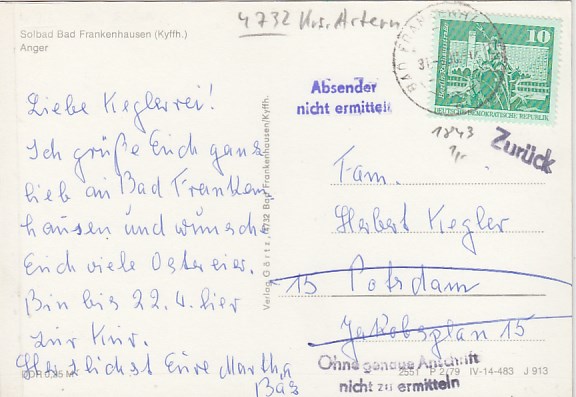 4732 Krs. Artern
Solbad Bad Frankenhausen (Kyffh.)
Anger
10
DEUTSCHE DEMOKRATISCHE REPUBLIK
Absender
nicht ermittelt
1843
Zurück
Liebe Keglerrei!
Ich grüße Euch ganz
lieb aus Bad Franken
hausen und wünsche
Euch viele Ostereier.
Bin bis 22.4. hier
zur Kur.
Herzlichst Eure Martha
Bär
Verlag Görtz, 4732 Bad Frankenhausen/Kyffh.
Fam.
Herbert Kegler
15 Potsdam
Jakobsplan 15
Ohne genaue Anschrift
nicht zu ermitteln
DDR 0,25 M
2551 P 2/79 IV-14-483 J 913